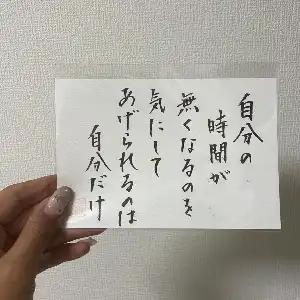 自分の
時間が
無くなるのを
気にして
あげられるのは
自分だけ